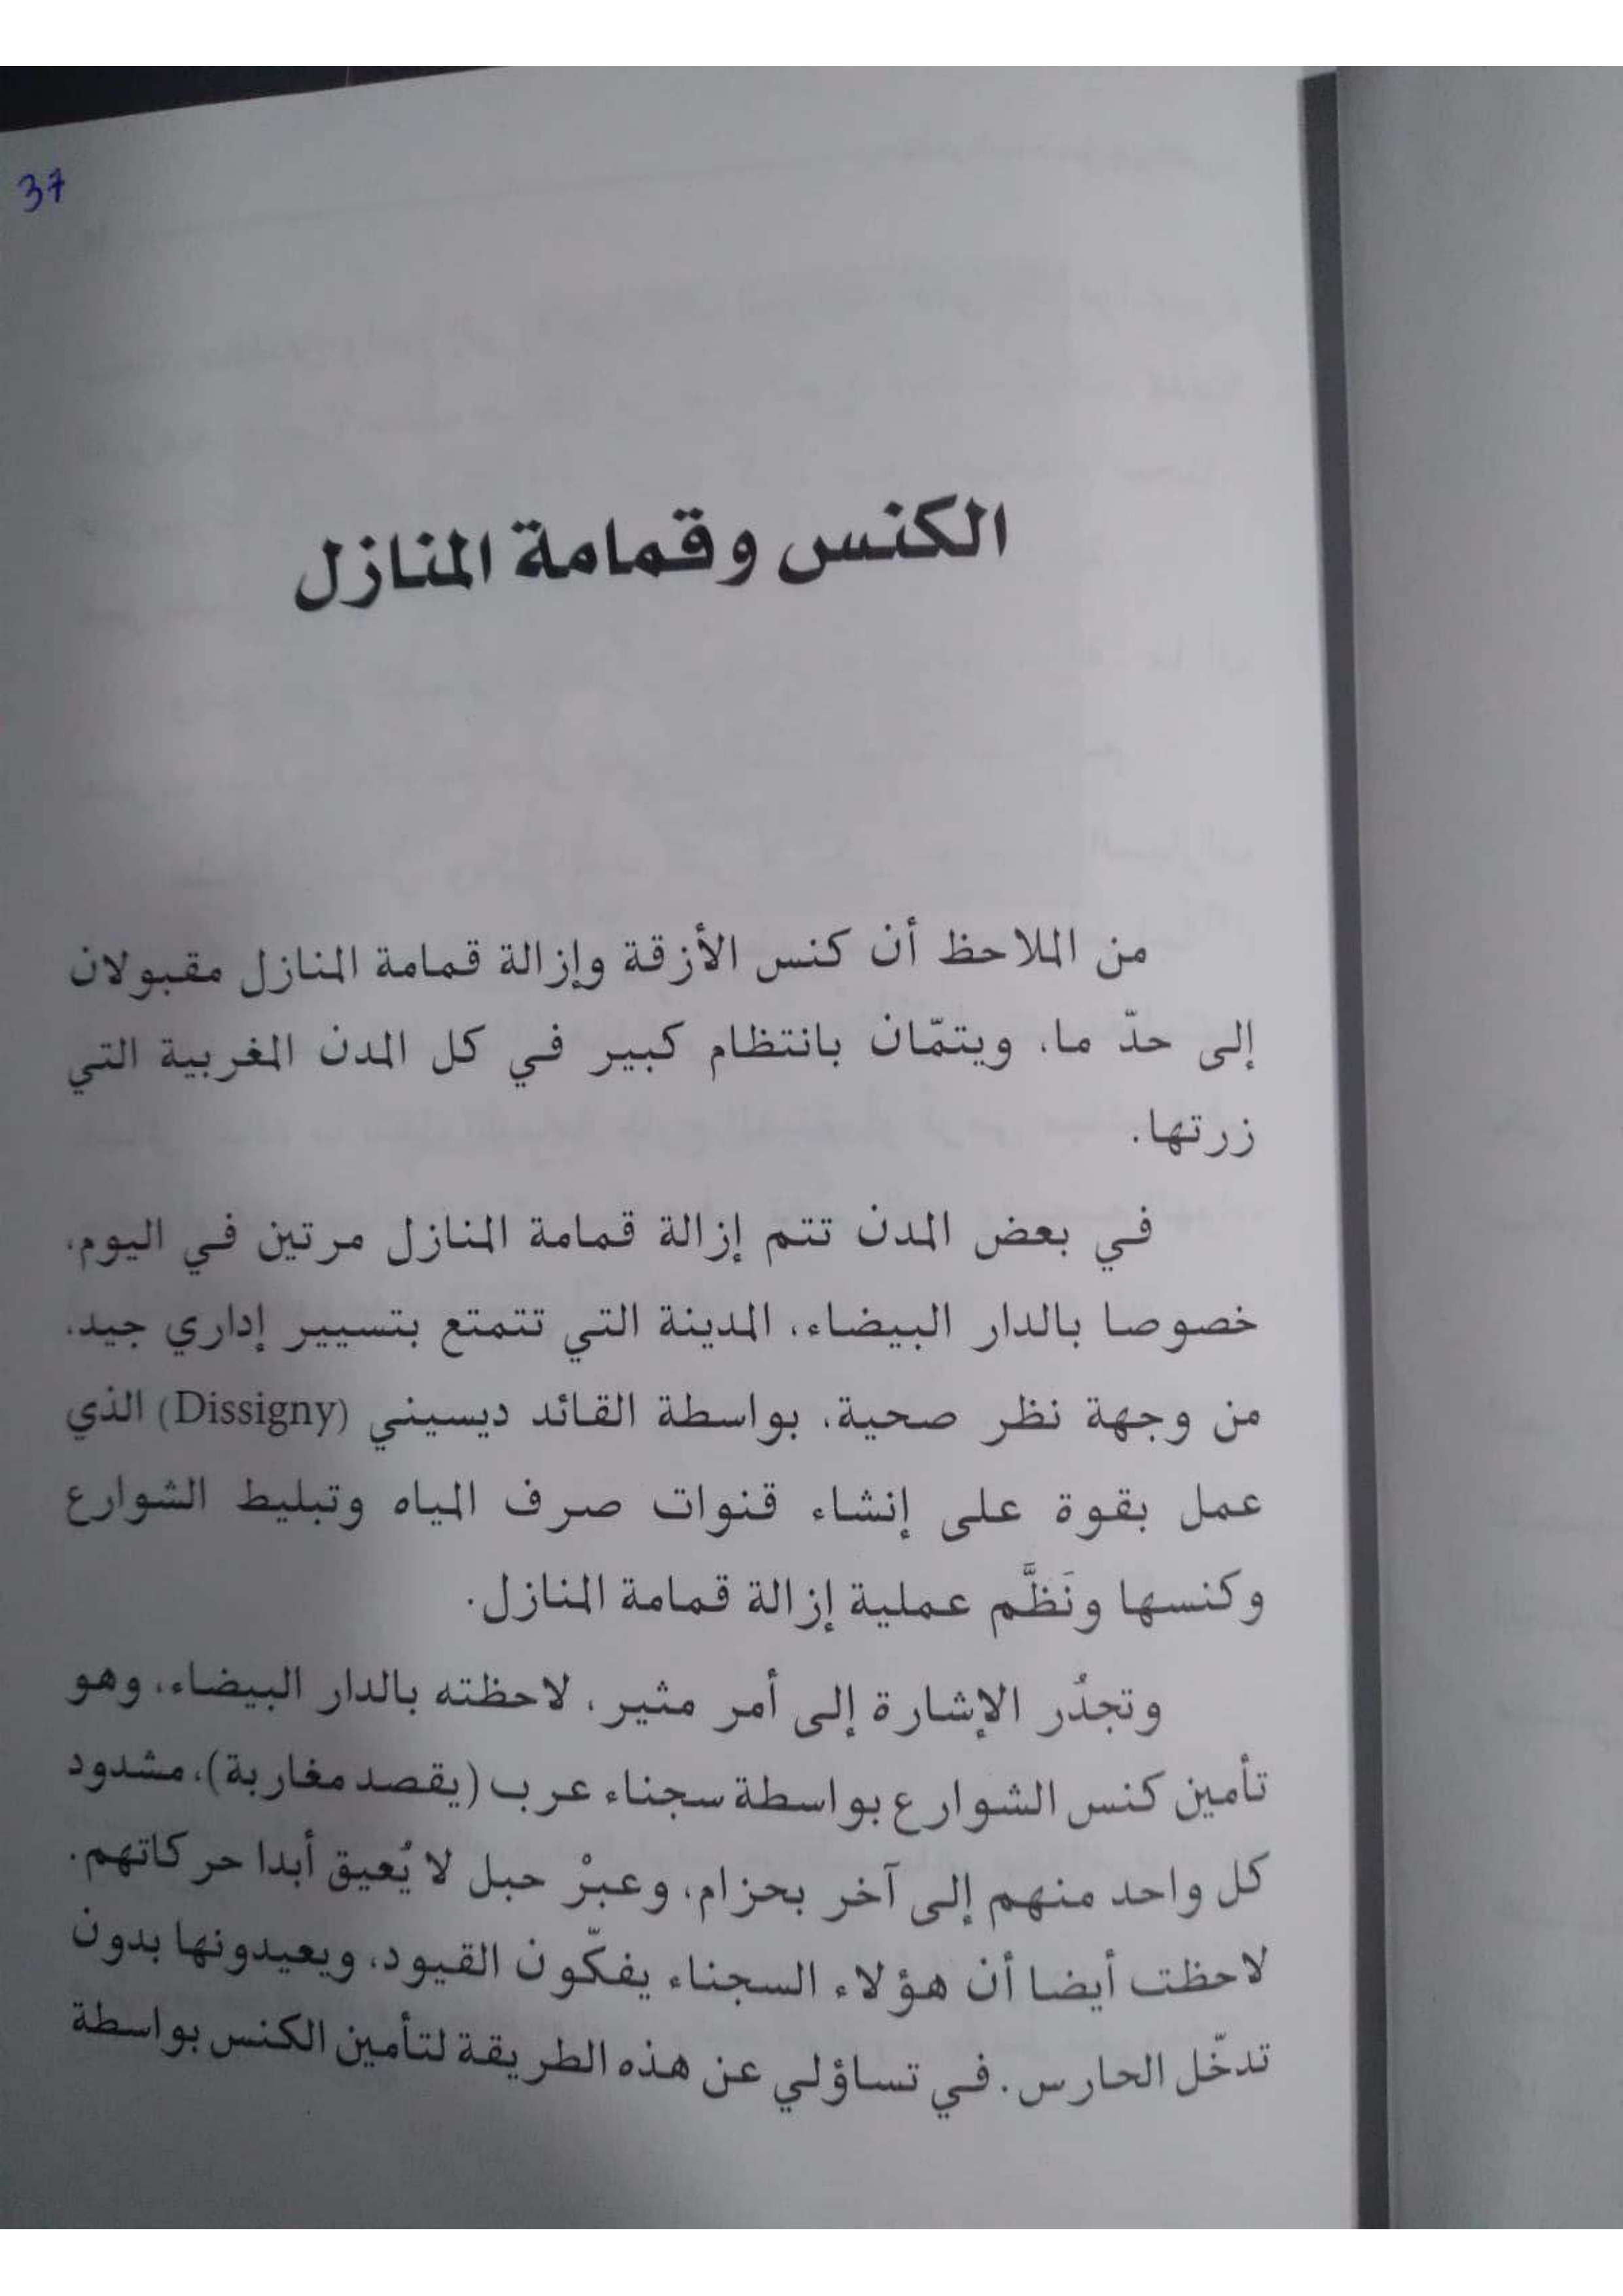 37
الكنس وقمامة المنازل
من الملاحظ أن كنس الأزقة وإزالة قمامة المنازل مقبولان
إلى حدّ ما، ويتمّان بانتظام كبير في كل المدن المغربية التي
زرتها.
في بعض المدن تتم إزالة قمامة المنازل مرتين في اليوم،
خصوصا بالدار البيضاء، المدينة التي تتمتع بتسيير إداري جيد،
من وجهة نظر صحية، بواسطة القائد ديسيني (Dissigny) الذي
عمل بقوة على إنشاء قنوات صرف المياه وتبليط الشوارع
وكنسها ونَظَّم عملية إزالة قمامة المنازل.
وتجدُر الإشارة إلى أمر مثير، لاحظته بالدار البيضاء، وهو
تأمين كنس الشوارع بواسطة سجناء عرب (يقصد مغاربة)، مشدود
كل واحد منهم إلى آخر بحزام، وعبرْ حبل لا يُعيق أبدا حركاتهم.
لاحظت أيضا أن هؤلاء السجناء يفكّون القيود، ويعيدونها بدون
تدخّل الحارس. في تساؤلي عن هذه الطريقة لتأمين الكنس بواسطة